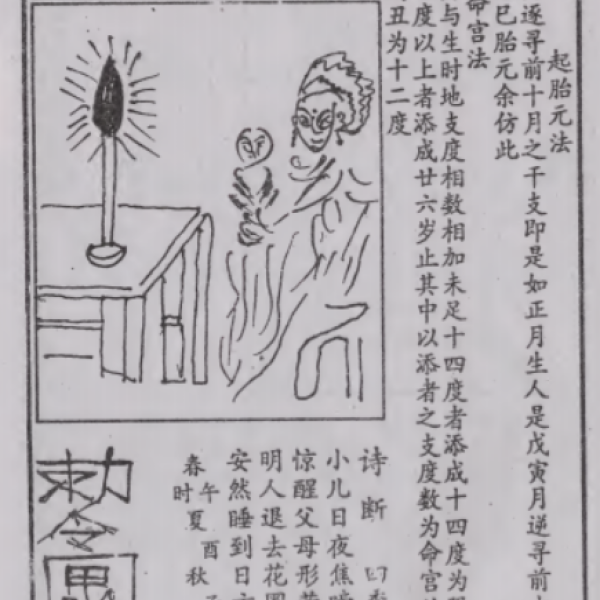 起胎元法
逐寻前十月之干支即是如正月生人是戊寅月逆寻前
巳胎元余仿此
命宫法
与生时地支度相数相加未足十四度者添成十四度为
度以上者添成廿六岁止其中以添者之支度数为命宫
丑为十二度
诗断
小儿日夜焦
惊醒父母形
明人退去花
安然睡到日
午酉
春夏秋
时
敕令